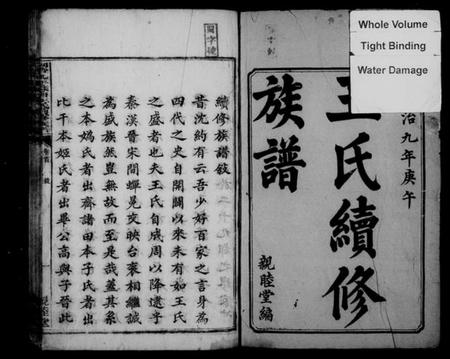 Whole Volume
Tight Binding
Water Damage
治九年庚午
王氏續修
族譜
親睦堂編
續修族譜敍
昔沈約有云吾少好百家之言身為
四代之史自開闢以來未有如王氏
之盛者也夫王氏自成周以降逮乎
秦漢晉宋間蟬冕交映台袞相繼誠
為盛族然豈無故而至是哉蓋其系
之本媯氏者出齊諸田本子氏者出
比干本姬氏者出畢公高與子晉此